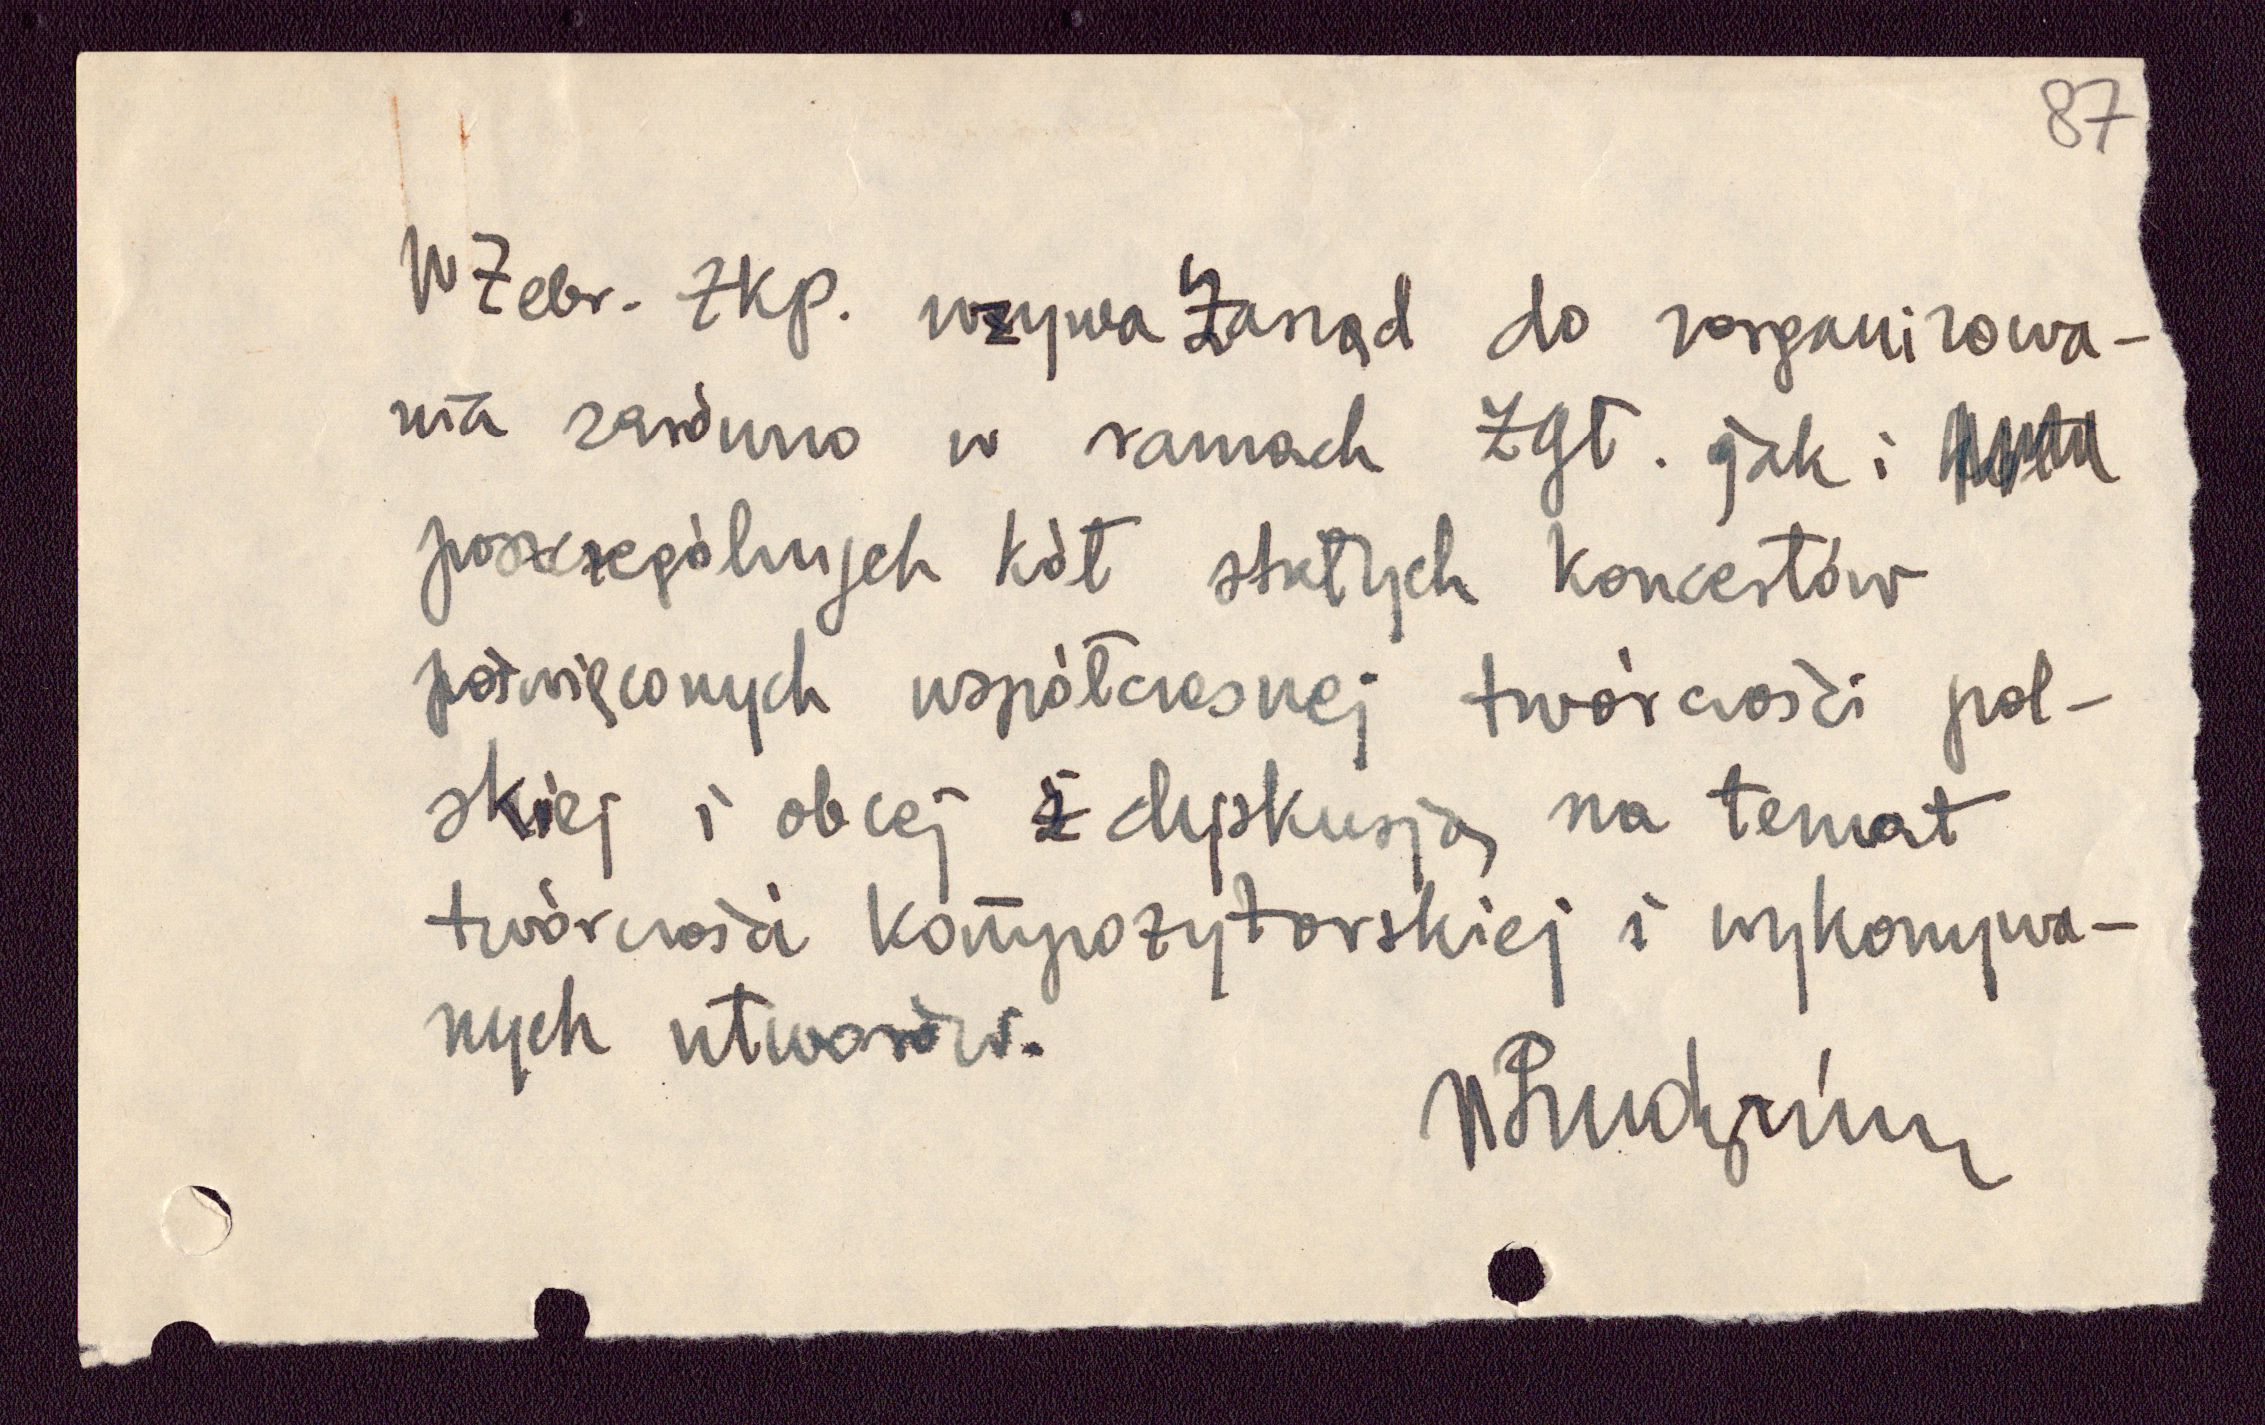 87
W Zebr. ZKP. wzywa Zarząd do zorganizowa-
nia zarówno w ramach Zgł. jak i
poszczególnych kół stałych koncertów
poświęconych współczesnej twórczości pol-
skiej i obcej z dyskusją na temat
twórczości kompozytorskiej i wykonywa-
nych utworów.
WRudziński